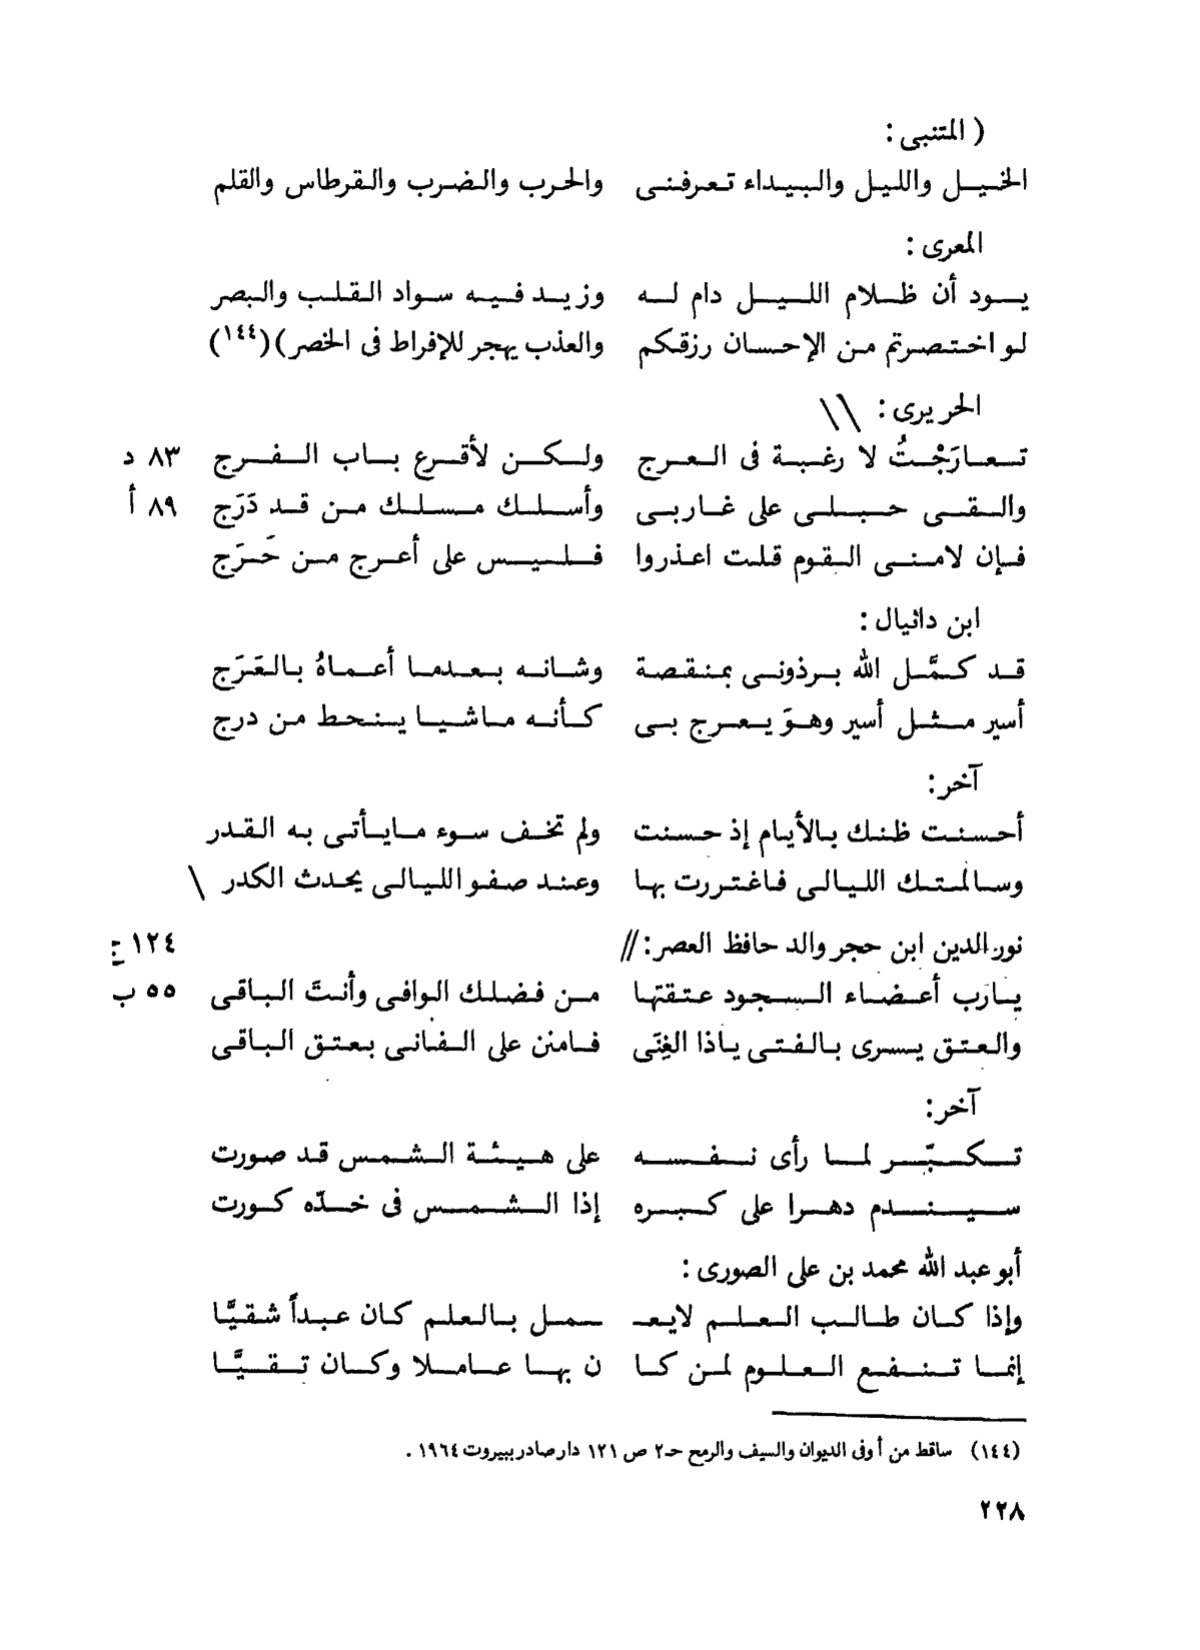 ( المتنبى :
الخيل والليل والبيداء تعرفنى والحرب والضرب والقرطاس والقلم
المعرى :
يود أن ظلام الليل دام له وزيد فيه سواد القلب والبصر
لو اختصرتم من الإحسان رزقكم والعذب يهجر للإفراط فى الخصر)(١٤٤)
الحريرى : \\
تعارَجْتُ لا رغبة فى العرج ولكن لأقرع باب الفرج ٨٣ د
والقى حبلى على غاربى وأسلك مسلك من قد دَرَج ٨٩ أ
فإن لامنى القوم قلت اعذروا فليس على أعرج من حَرَج
ابن دانيال :
قد كمَّل الله برذونى بمنقصة وشانه بعدما أعماهُ بالعَرَج
أسير مثل أسير وهوَ يعرج بى كأنه ماشيا ينحط من درج
آخر:
أحسنت ظنك بالأيام إذ حسنت ولم تخف سوء مايأتى به القدر
وسالمتك الليالى فاغتررت بها وعند صفو الليالى يحدث الكدر \
نور الدين ابن حجر والد حافظ العصر: // ١٢٤ ج
يارب أعضاء السجود عتقتها من فضلك الوافى وأنتَ الباقى ٥٥ ب
والعتق يسرى بالفتى ياذا الغِنَى فامنن على الفانى بعتق الباقى
آخر:
تكبّر لما رأى نفسه على هيئة الشمس قد صورت
سيندم دهرا على كبره إذا الشمس فى خدّه كورت
أبو عبد الله محمد بن على الصورى :
وإذا كان طالب العلم لايعـ ـمل بالعلم كان عبداً شقيًّا
إنما تنفع العلوم لمن كا ن بها عاملا وكان تقيًّا
(١٤٤) ساقط من أ وفى الديوان والسيف والرمح حـ٢ ص ١٢١ دار صادر ببيروت ١٩٦٤ .
٢٢٨